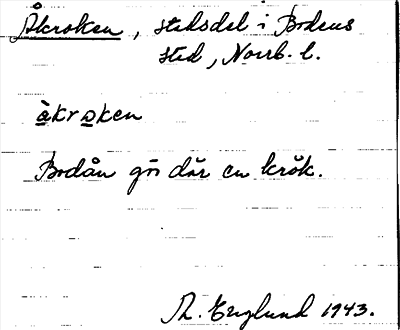 Åkroken, stadsdel i Bodens
stad, Norrb. l.
àkroken
Bodån gör där en krök.
Th. Englund 1943.